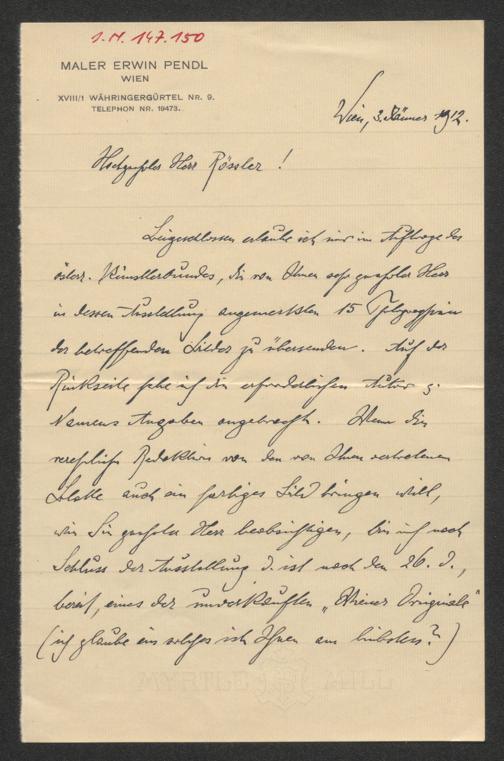 I.N. 147.150
MALER ERWIN PENDL
WIEN
XVIII/1 WÄHRINGERGÜRTEL NR. 9.
TELEPHON NR. 19473.
Wien, 3. Jänner 1912.
Hochgeehrter Herr Rössler!
Beigeschlossen erlaube ich mir im Auftrage des
österr. Künstlerbundes, die von Ihnen sehr geehrter Herr
in dessen Ausstellung angemerkten 15 Photographien
der betreffenden Bilder zu übersenden. Auf der
Rückseite habe ich die erforderlichen Autor
Namens Angaben angebracht. Wenn die
verehrliche Redaktion von dem von Ihnen vertretenen
Blatte auch ein farbiges Bild bringen will,
wie Sie geehrter Herr beabsichtigen, bin ich nach
Schluss der Ausstellung d. ist nach dem 26. d.,
bereit, eines der unverkauften „Wiener Originale"
(ich glaube ein solches ist Ihnen am liebsten?)
MYRTLE MILL